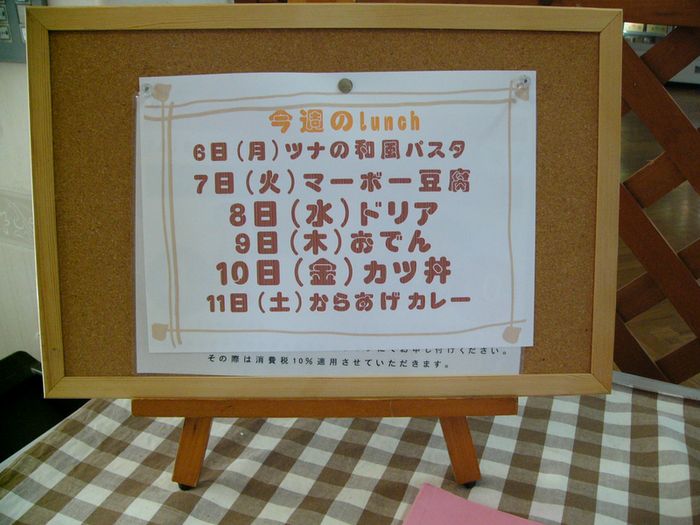 今週のlunch
6日(月)ツナの和風パスタ
7日(火)マーボー豆腐
8日(水)ドリア
9日(木)おでん
10日(金)カツ丼
11日(土)からあげカレー
お申し付けください。
その際は消費税10%適用させていただきます。